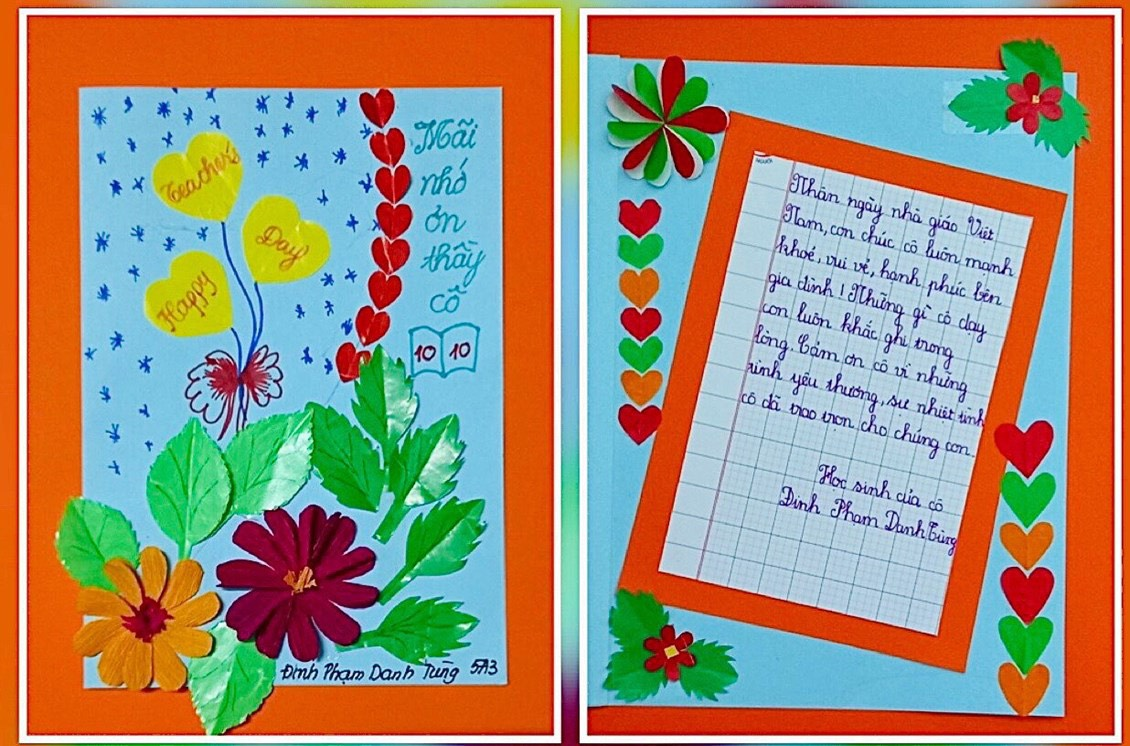 Teacher's
Day
Happy
Mãi
nhớ
ơn
thầy
cô
10 10
Đinh Phạm Danh Tùng 5A3
Nhân ngày nhà giáo Việt
Nam, con chúc cô luôn mạnh
khoẻ, vui vẻ, hạnh phúc bên
gia đình! Những gì cô dạy
con luôn khắc ghi trong
lòng. Cảm ơn cô vì những
tình yêu thương, sự nhiệt tình
cô đã trao trọn cho chúng con.
Học sinh của cô
Đinh Phạm Danh Tùng